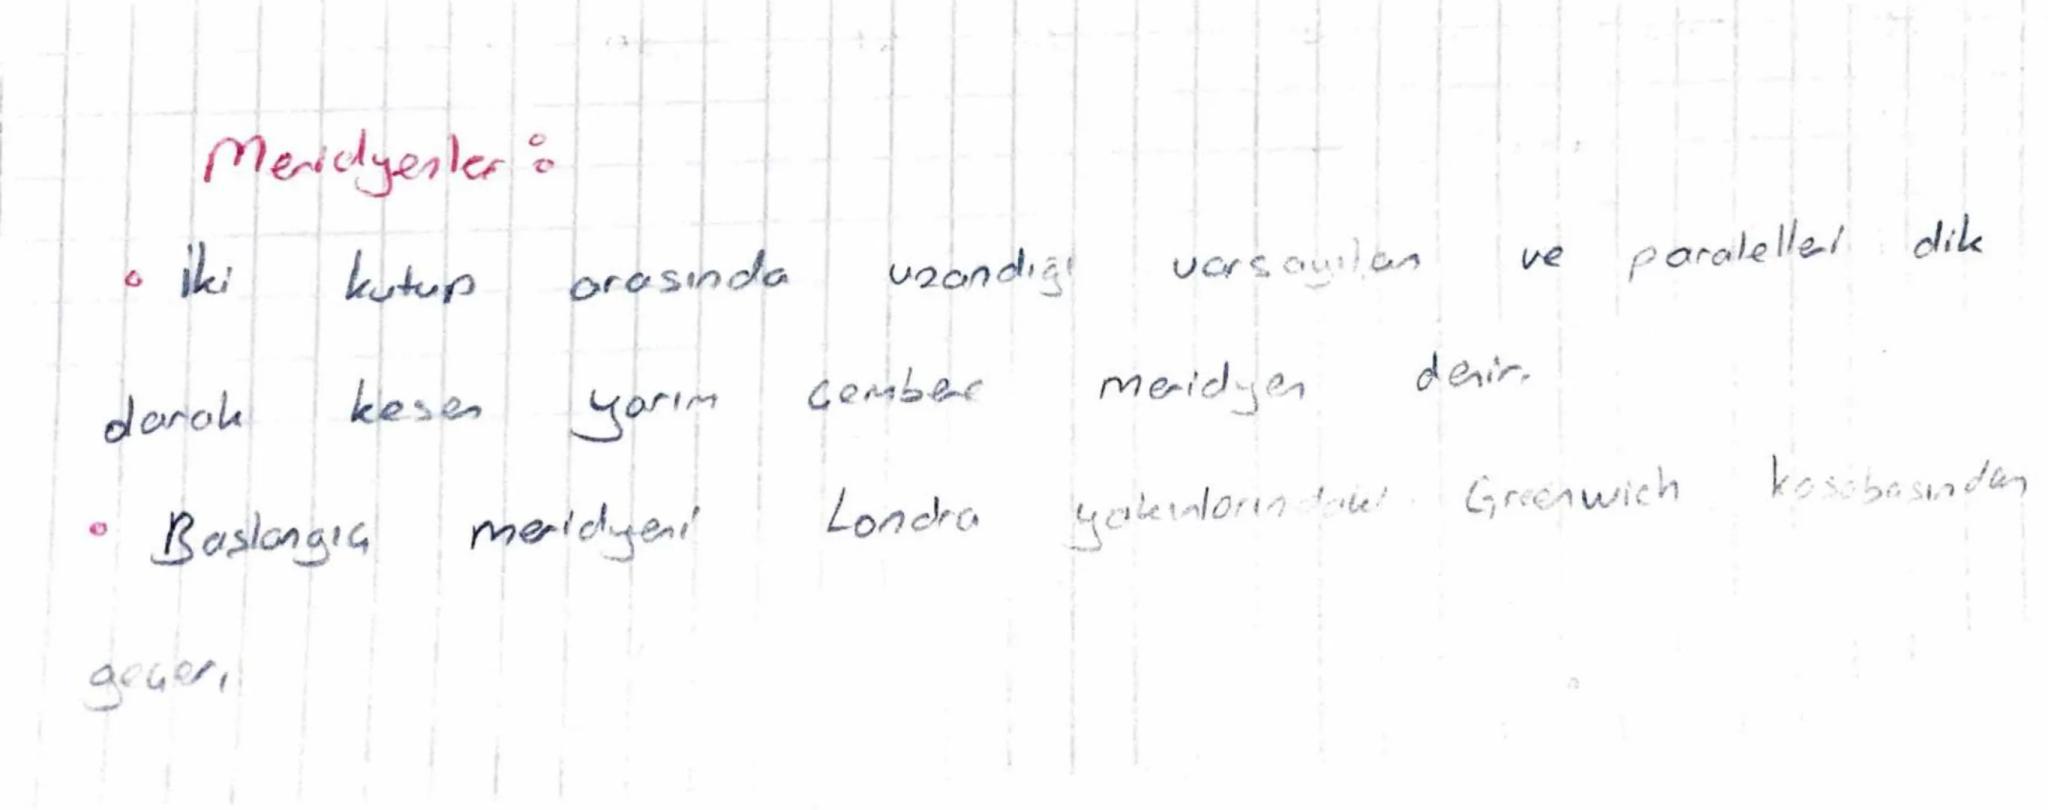 Meridyenler:
• İki kutup arasında uzandığı varsayılan ve paralelleri dik
darak kesen yarım çember meridyen denir.
• Baslangıç meridyeni Londra yakınlarındaki Greenwich kasabasından
geçer.